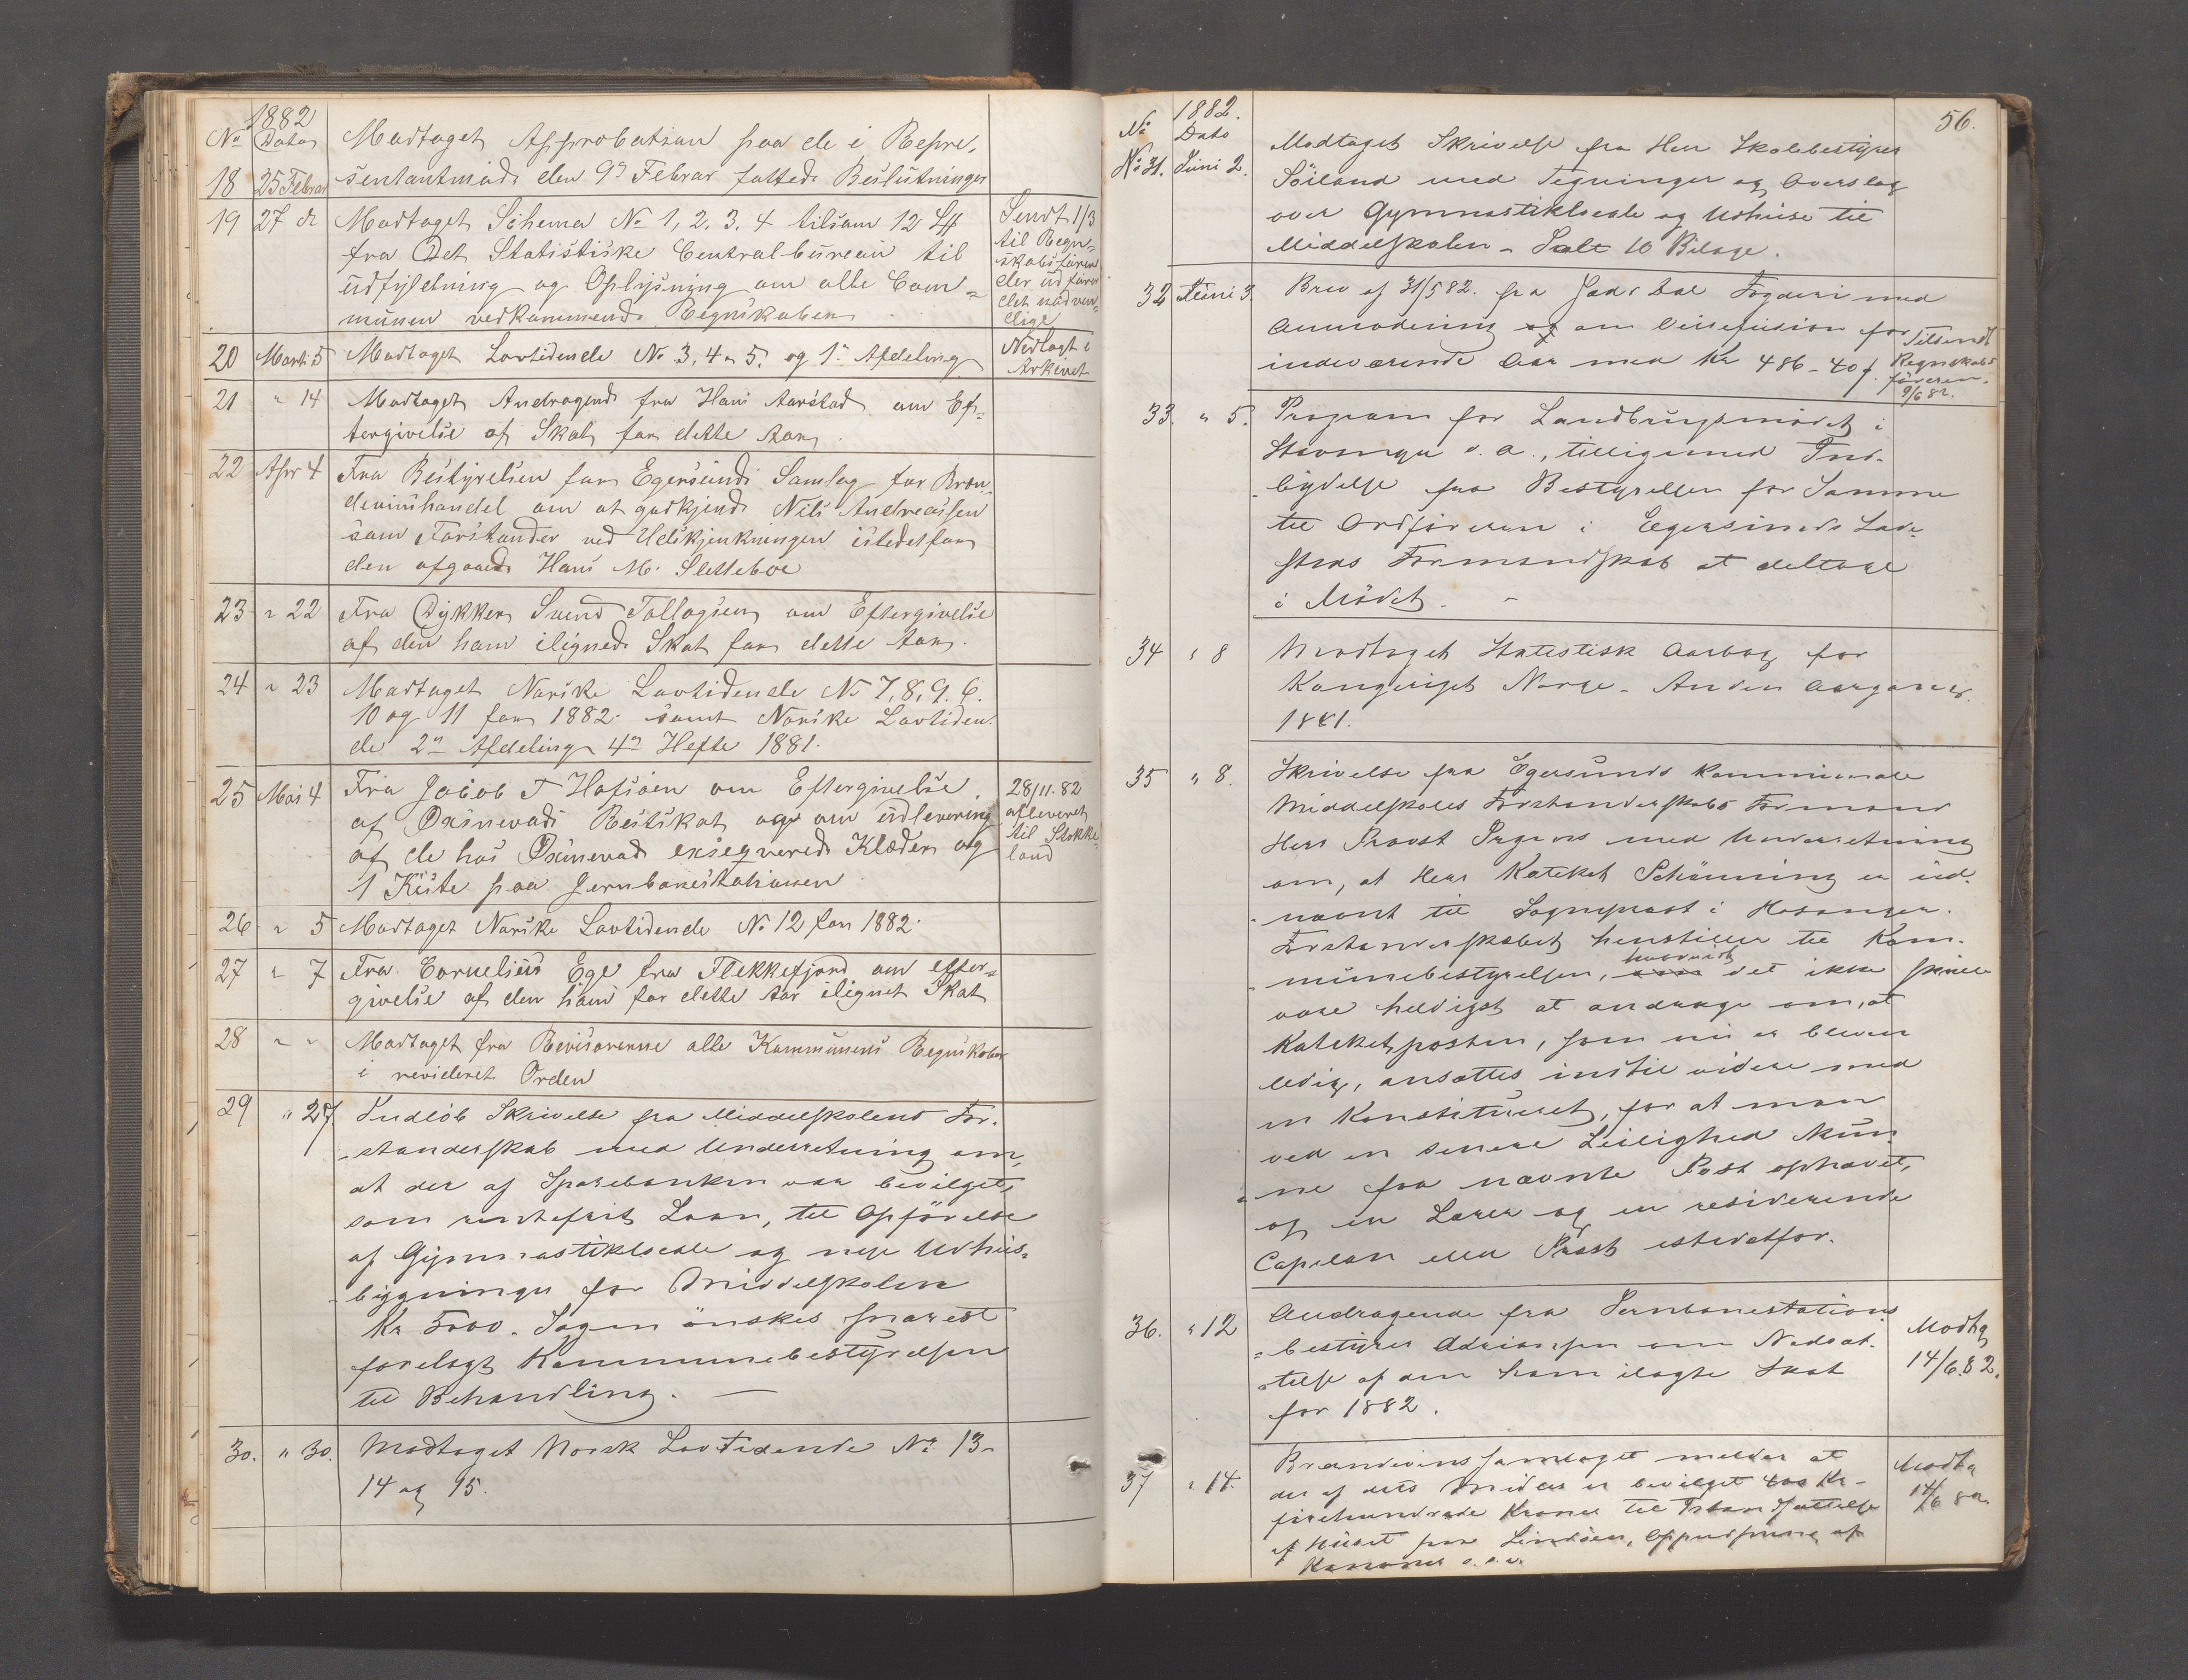 1882
No Dato Modtaget Approbation paa de i Repre-
18 25 Februar sentantmøde den 9de Februar fattede Beslutninger
19 27 do Modtaget Schema No 1, 2, 3, 4 tilsam 12
fra Det Statistiske Central-bureau til
udfyldning og Oplysning om alle Com-
munen vedkommende Regnskaber
Sendt 1/3
til Regn-
skabsføren
der udfører
det nødven-
dige
20 Marts 5 Modtaget Lovtidende No 3, 4 & 5. og 1ste Afdeling
Nedlagt i
Arkivet
21 " 14 Modtaget Andragende fra Hans Aarstad om Ef-
tergivelse af Skat for dette Aar.
22 Apr 4 Fra Bestyrelsen for Egersunds Samlag for Bræn-
devinshandel om at godkjende Nils Andreassen
som Forstander ved Udskjenkningen istedetfor
den afgaaede Hans M. Sletteboe
23 " 22 Fra Dykker Svend Tollagsen om Eftergivelse
af den ham ilignede Skat for dette Aar.
24 " 23 Modtaget Norske Lovtidende No 7, 8, 9. 6.
10 og 11 for 1882. samt Norske Lovtiden-
de 2den Afdeling 4de Hefte 1881.
25 Mai 4 Fra Jacob T Hofsøen om Eftergivelse
af Oxinevads Restskat og om udlevering
af de hos Oxinevad exseqverede Klæder og
1 Kiste paa Jernbanestationen
28/11. 82
afleveret
til Stokke-
land
26 " 5 Modtaget Norske Lovtidende No 12 for 1882.
27 " 7 Fra Cornelius Ege fra Flekkefjord om efter-
givelse af den ham for dette Aar ilignet Skat
28 " " Modtaget fra Revisorerne alle Kommunens Regnskaber
i revideret Orden
29 " 27. Indløb Skrivelse fra Middelskolens For-
standerskab med Underretning om,
at der af Sparebanken var bevilget,
som rentefrit Laan, til Opførelse
af Gymnastiklocale og nye Udhus-
bygninger for Middelskolen
Kr 5000. Sagen önskes snarest
forelagt Kommunebestyrelsen
til Behandling. —
30. " 30. Modtaget Norsk Lovtidende No 13-
14 og 15.
56.
1882.
No Dato
No 31. Juni 2. Modtaget Skrivelse fra Herr Skolebestyrer
Söiland med Tegninger og Overslag
over Gymnastiklocale og Udhuse til
Middelskolen - Ialt 10 Bilage.
32 Juni 3. Brev af 31/5 82. fra Jæd. & Dal. Fogderi med
Anmodning og om Refusion for
indeværende Aar med Kr 486-40 f.
Tilsendt
Regnskabs
føreren.
9/6 82.
33. " 5. Program for Landbrugsmödet i
Stavanger d. a., tilligemed Ind-
bydelse fra Bestyrelsen for Samme
til Ordföreren i Egersunds Lade-
steds Formandskab at deltage
i Mödet. -
34 " 8 Modtaget Statistisk Aarbog for
Kongeriget Norge - Anden Aargang.
1881.
35 " 8. Skrivelse fra Egersunds kommunale
Middelskoles Forstanderskabs Formand
Herr Provst Irgens med Underretning
om, at Herr Kateket Schönning er ud-
nævnt til Sogneprest i Hosanger.
Forstanderskabet henstiller til Kom-
munebestyrelsen, hvorvidt det ikke skulde
være heldigst at andrage om, at
Kateketposten, som nu er bleven
ledig, ansættes indtil videre med
en Konstitueret, for at man
ved en senere Leilighed kun-
ne faa nævnte Post ophævet,
og en Lærer og en residerende
Capelan eller Præst istedetfor.
36. " 12 Andragende fra Jernbanestations
bestyrer Adriansen om Nedsæt-
telse af den ham ilagte Skat
for 1882.
Modtg
14/6.82.
37 " 14. Brændevinssamlaget melder at
der af dets Midler er bevilget 400 Kr-
firehundrede Kroner til Istandsættelse
af Huset paa Lindöen, Oppudsning af
Kanoner o. s. v.
Modtg
14/6 82